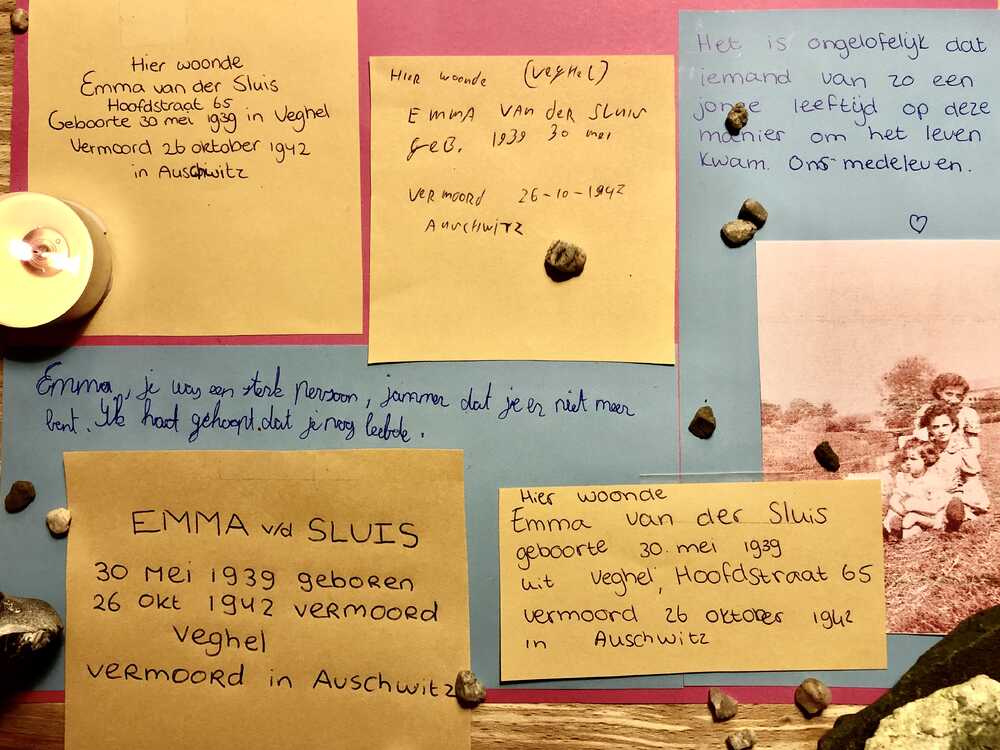 Hier woonde
Emma van der Sluis
Hoofdstraat 65
Geboorte 30 mei 1939 in Veghel
Vermoord 26 oktober 1942
in Auschwitz
Hier woonde (Veghel)
EMMA VAN der SLUIS
GeB. 1939 30 mei
Vermoord 26-10-1942
Auschwitz
Het is ongelofelijk dat
iemand van zo een
jonge leeftijd op deze
manier om het leven
kwam. Ons medeleven.
♡
Emma, je was een sterk persoon, jammer dat je er niet meer
bent. Ik had gehoopt dat je nog leefde.
EMMA v/d SLUIS
30 MEI 1939 geboren
26 OKT 1942 VERMOORD
Veghel
VERMOORD in AUSCHWITZ
Hier woonde
Emma van der Sluis
geboorte 30 mei 1939
uit Veghel, Hoofdstraat 65
vermoord 26 oktober 1942
in Auschwitz